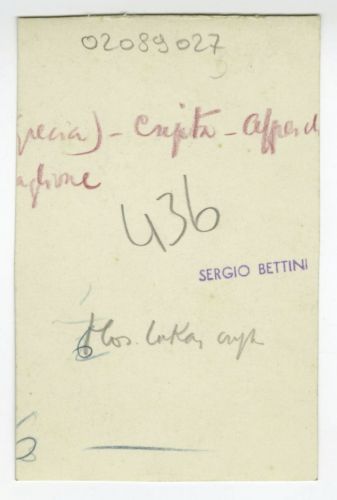 02089027
(recia) - Cripta - Affresch
aglione
436
SERGIO BETTINI
Hos. Lukas cryp
6